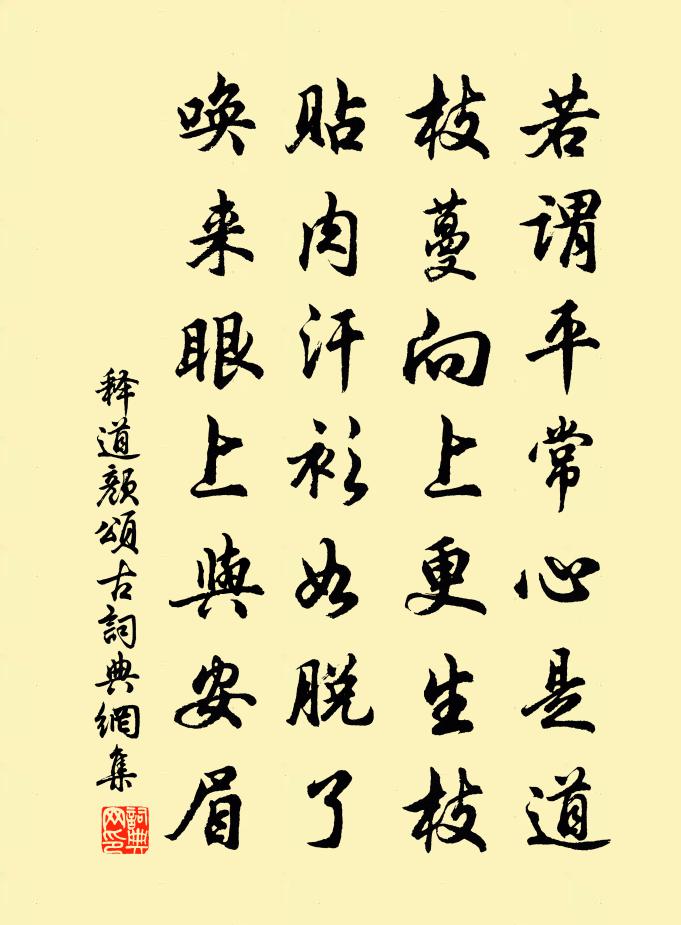 若謂平常心是道
枝蔓向上更生枝
貼肉汗衫如脱了
唤来眼上與安眉
释道颜頌古詞典網集
詞典
网印